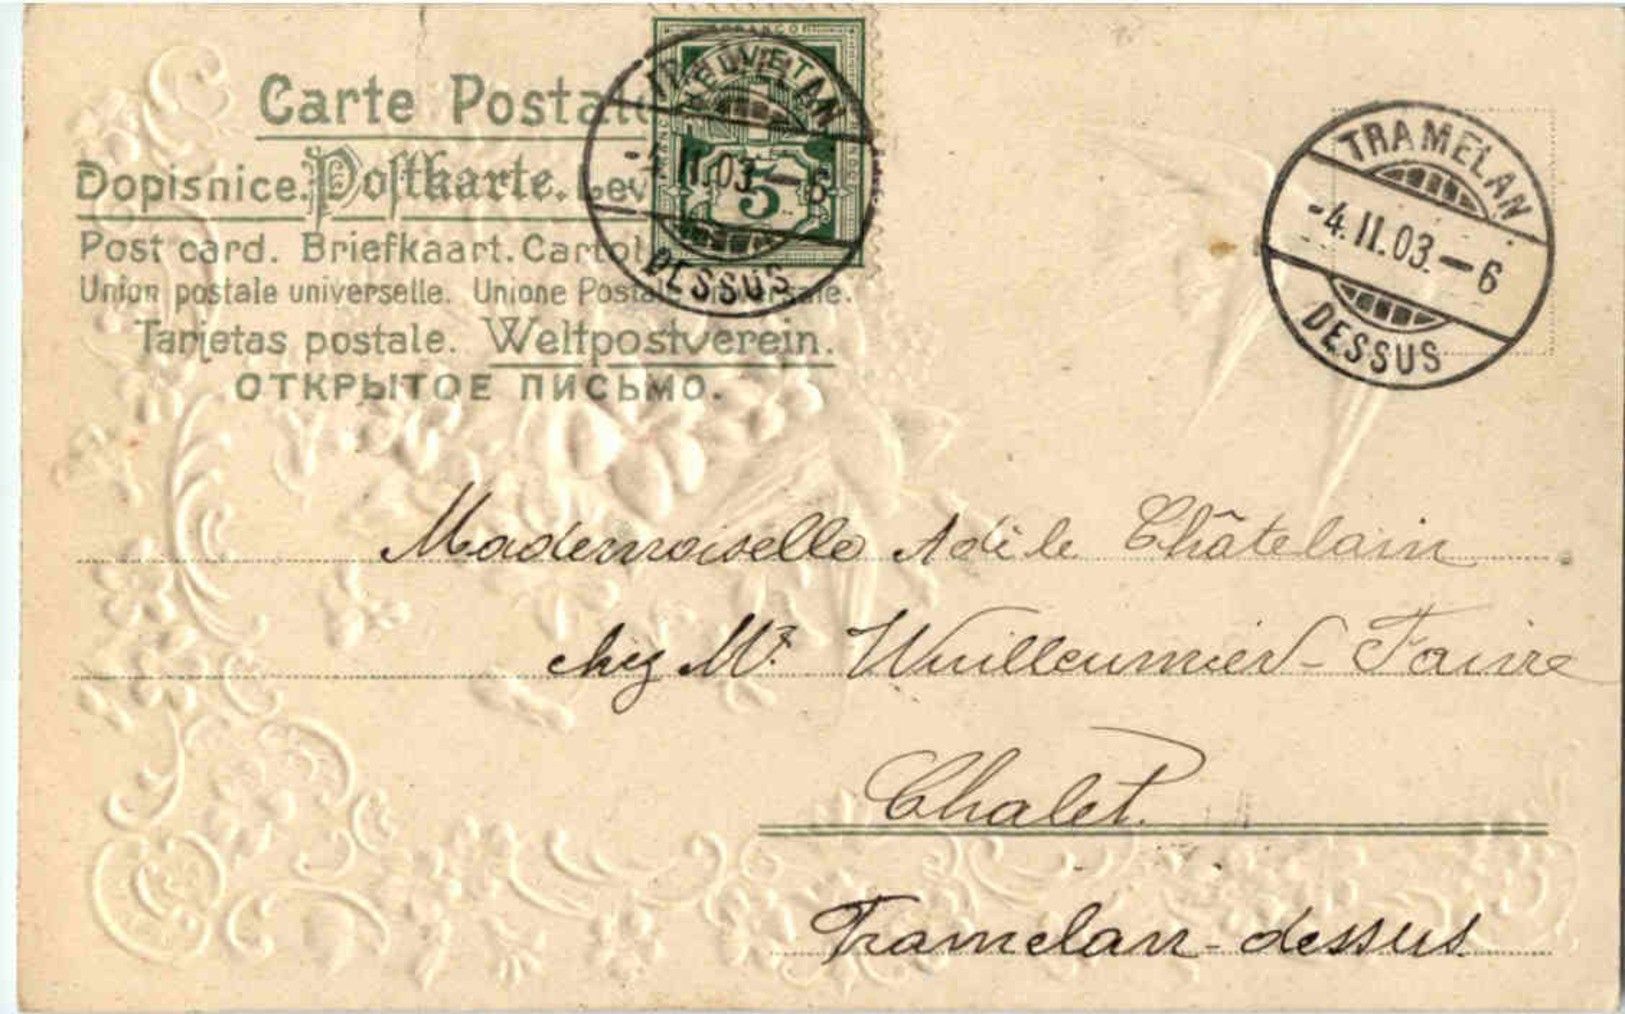 Carte Postale
Dopisnice. Postkarte. Lev
Post card. Briefkaart. Cartol
Union postale universelle. Unione Postale Universale.
Tarjetas postale. Weltpostverein.
ОТКРЫТОЕ ПИСЬМО.
FRANCO
HELVETIA
5
TRAMELAN
-4.II.03.-6
DESSUS
TRAMELAN
-4.II.03.-6
DESSUS
Mademoiselle Adèle Châtelain
chez Mr. Wuilleumier-Faivre
Chalet.
Tramelan-dessus.